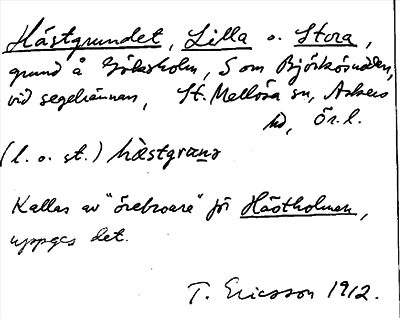 Hästgrundet, Lilla o. Stora,
grund å Göksholm, S om Björkösundet,
vid segelrännan, St. Mellösa sn, Askers
hd, Ör. l.
(l. o. st.) hæstgrans
Kallas av "örebroare" för Hästholmen,
uppges det.
T. Ericsson 1912.